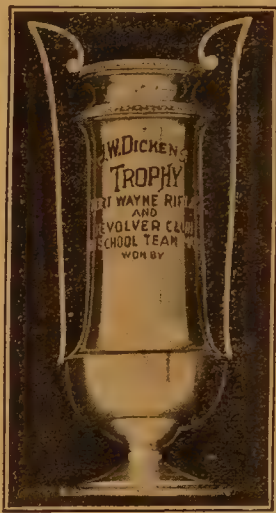 J.W. DICKEN
TROPHY
RT WAYNE RIFL
AND
EVOLVER CLU
CHOOL TEAM
WON BY